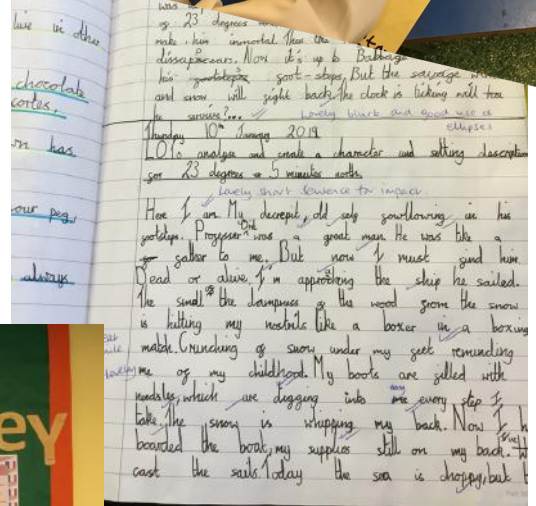 live in other
chocolate
cortes.
on has
our peg,
always
ey
was
of 23 degrees
make him immortal. Then the
dissapeears. Now it's up to Babbage
his foot-steps, But the savage
and snow will fight back, the clock is ticking will
he survive?...
Lovely blurb and good use of
ellipses
Thursday 10th January 2019
LO To analyse and create a character and setting description
for 23 degrees 5 minutes north.
Lovely short sentence for impact.
Here I am. My decrepit, old self gowllowing in his
footsteps. Proffesser Orit was a great man. He was like a
father to me. But now I must find him.
Dead or alive. I'm approthing the ship he sailed.
The smell of the dampness of the wood from the snow
is hitting my nostrils like a boxer in a boxing
match. Crunching of snow under my feet reminding
Lovely
me of my childhood. My boots are filled with
needsles, which are digging into me every step I
take. The snow is whipping my back. Now I
boarded the boat, my supplies still on my back.
cast the sails. Today the sea is choppy, but